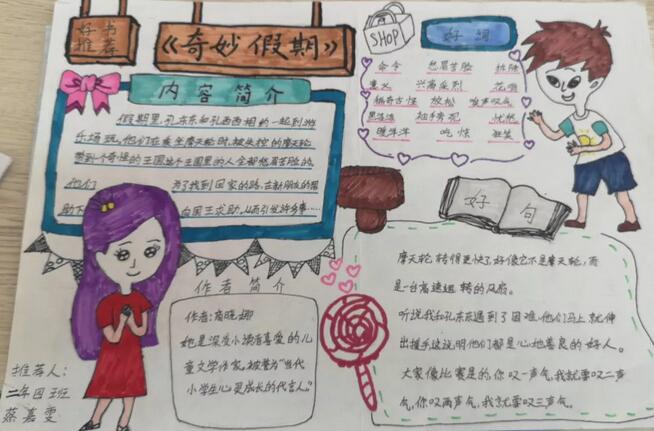 好书
推荐
《奇妙假期》
内容简介
假期里,孔东东和孔西西相约一起到游
乐场玩。他们在乘坐摩天轮时,被失控的摩天轮
带到个奇怪的王国。这个王国里的人全都愁眉苦脸的,
他们 为了找到回家的路,在新朋友的帮
助下 向国王求助,从而引发许多事……
作者简介
作者:商晓娜
她是深受小读者喜爱的儿
童文学作家,被誉为“当代
小学生心灵成长的代言人。”
推荐人:
二年四班
蔡嘉雯
SHOP
好词
命令 愁眉苦脸 排除
意义 兴高采烈
稀奇古怪 放松 唉声叹气
黑漆漆 袖手旁观 忧愁
暖洋洋 吃惊
好句
摩天轮转得更快了,好像它不是摩天轮,而
是一台高速运转的风扇。
听说我和孔东东遇到了困难,他们马上就伸
出援手,这说明他们都是心地善良的好人。
大家像比赛是的,你叹一声气,我就要叹二声
气,你叹两声气,我就要叹三声气。